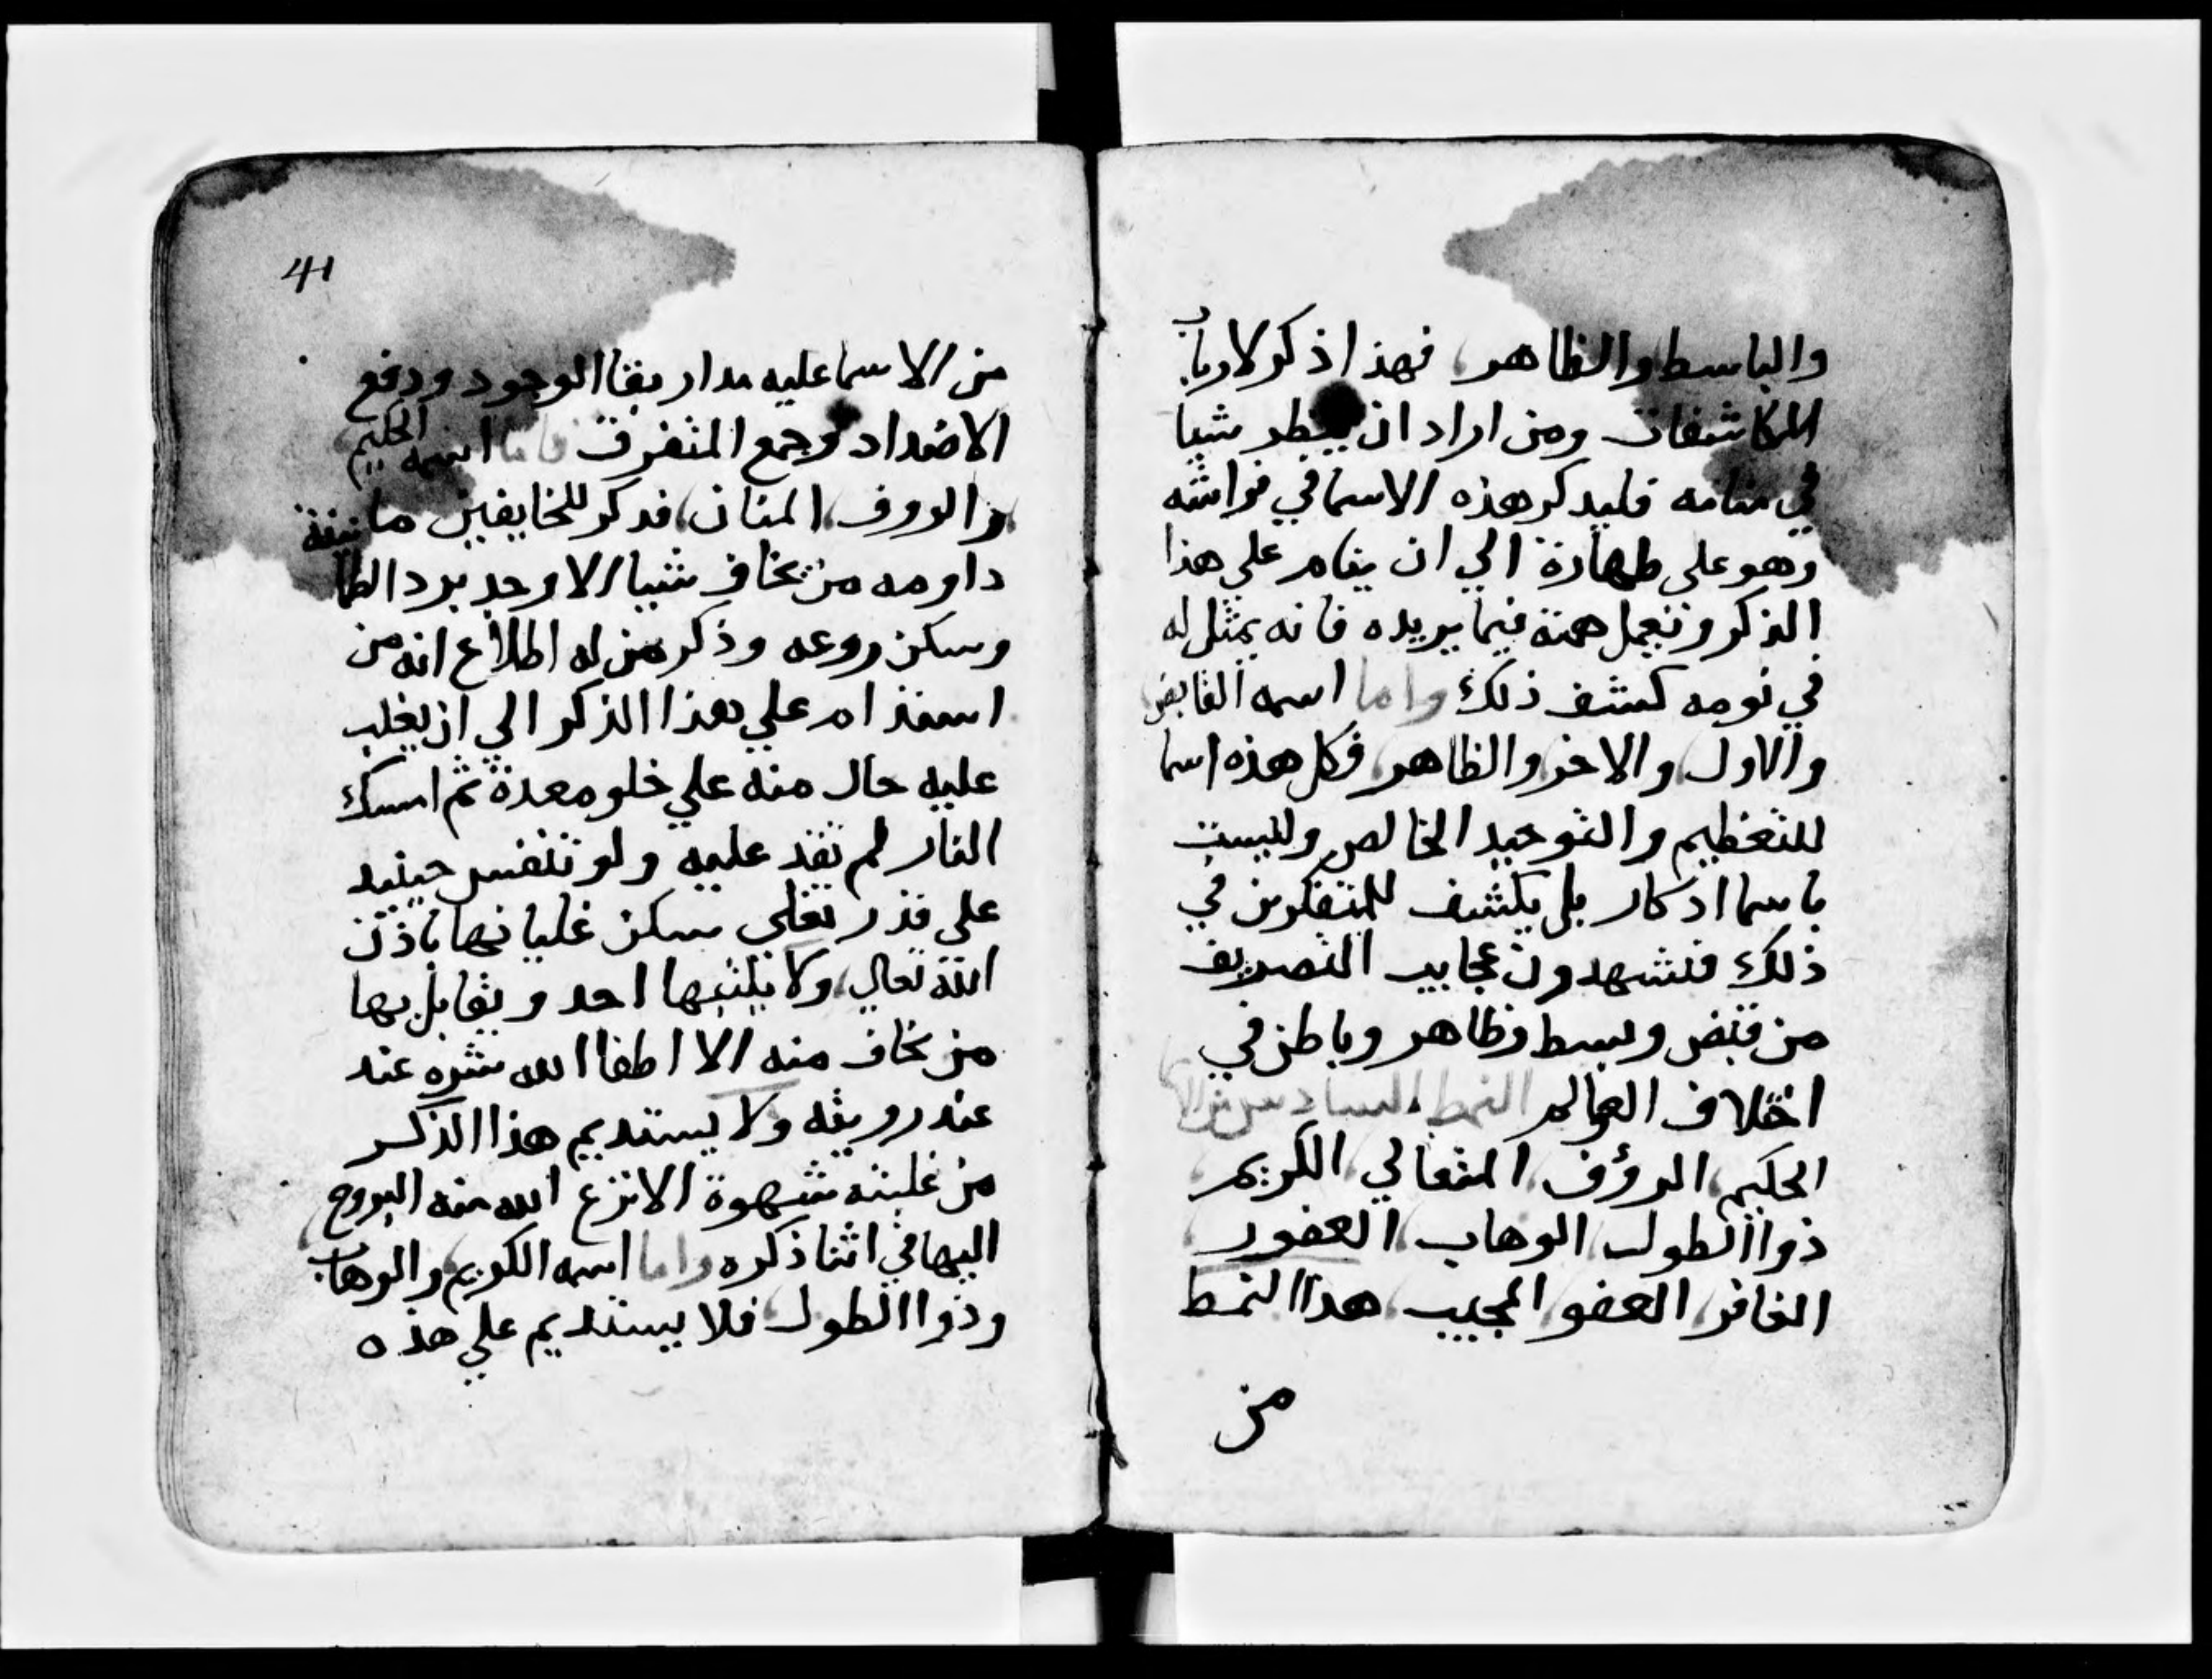 والباسط والظاهر فهذا ذكر لارباب
المكاشفات ومن اراد ان ينظر شيا
في منامه فليدكر هذه الاسما في فراشه
وهو على طهارة الي ان ينام علي هذا
الذكر وتعمل همته فيما يريده فانه يمثل له
في نومه كشف ذلك واما اسمه القابض
والاول والاخر والظاهر فكل هذه اسما
للتعظيم والتوحيد الخالص وليست
باسما ادكار بل يكشف للمتفكرين في
ذلك فتشهدون عجايب التصريف
من قبض وبسط وظاهر وباطن في
اختلاف العوالم النمط السادس من الاسما
الحكيم الرؤف المتعالي الكريم
ذوا الطول الوهاب الغفور
الغافر العفو المجيب هدا النمط
من
41
من الاسما عليه مدار بقا الوجود ودفع
الاضداد وجمع المتفرق فاما اسمه الحكيم
والروف المنان فدكر للخايفين ما
داومه من يخاف شيا الا وجد برد
وسكن روعه وذكر من له اطلاع انه من
استدام علي هذا الذكر الي ان يغلب
عليه حال منه علي خلو معدة ثم امسك
النار لم تعد عليه ولو تنفس حينيد
علي قدر تغلي سكن غليانها باذن
الله تعالي ولا يكتبها احد ويقابل بها
من يخاف منه الا اطفا الله شره عند
عند رويته ولا يستديم هذا الذكر
من غلبته شهوة الا نزع الله منه البروح
اليها في اثنا ذكره واما اسمه الكريم والوهاب
وذوا الطول فلا يستديم علي هذه